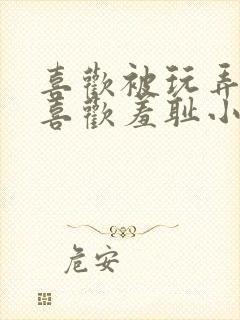 喜歡被玩弄
喜歡羞耻小
危安